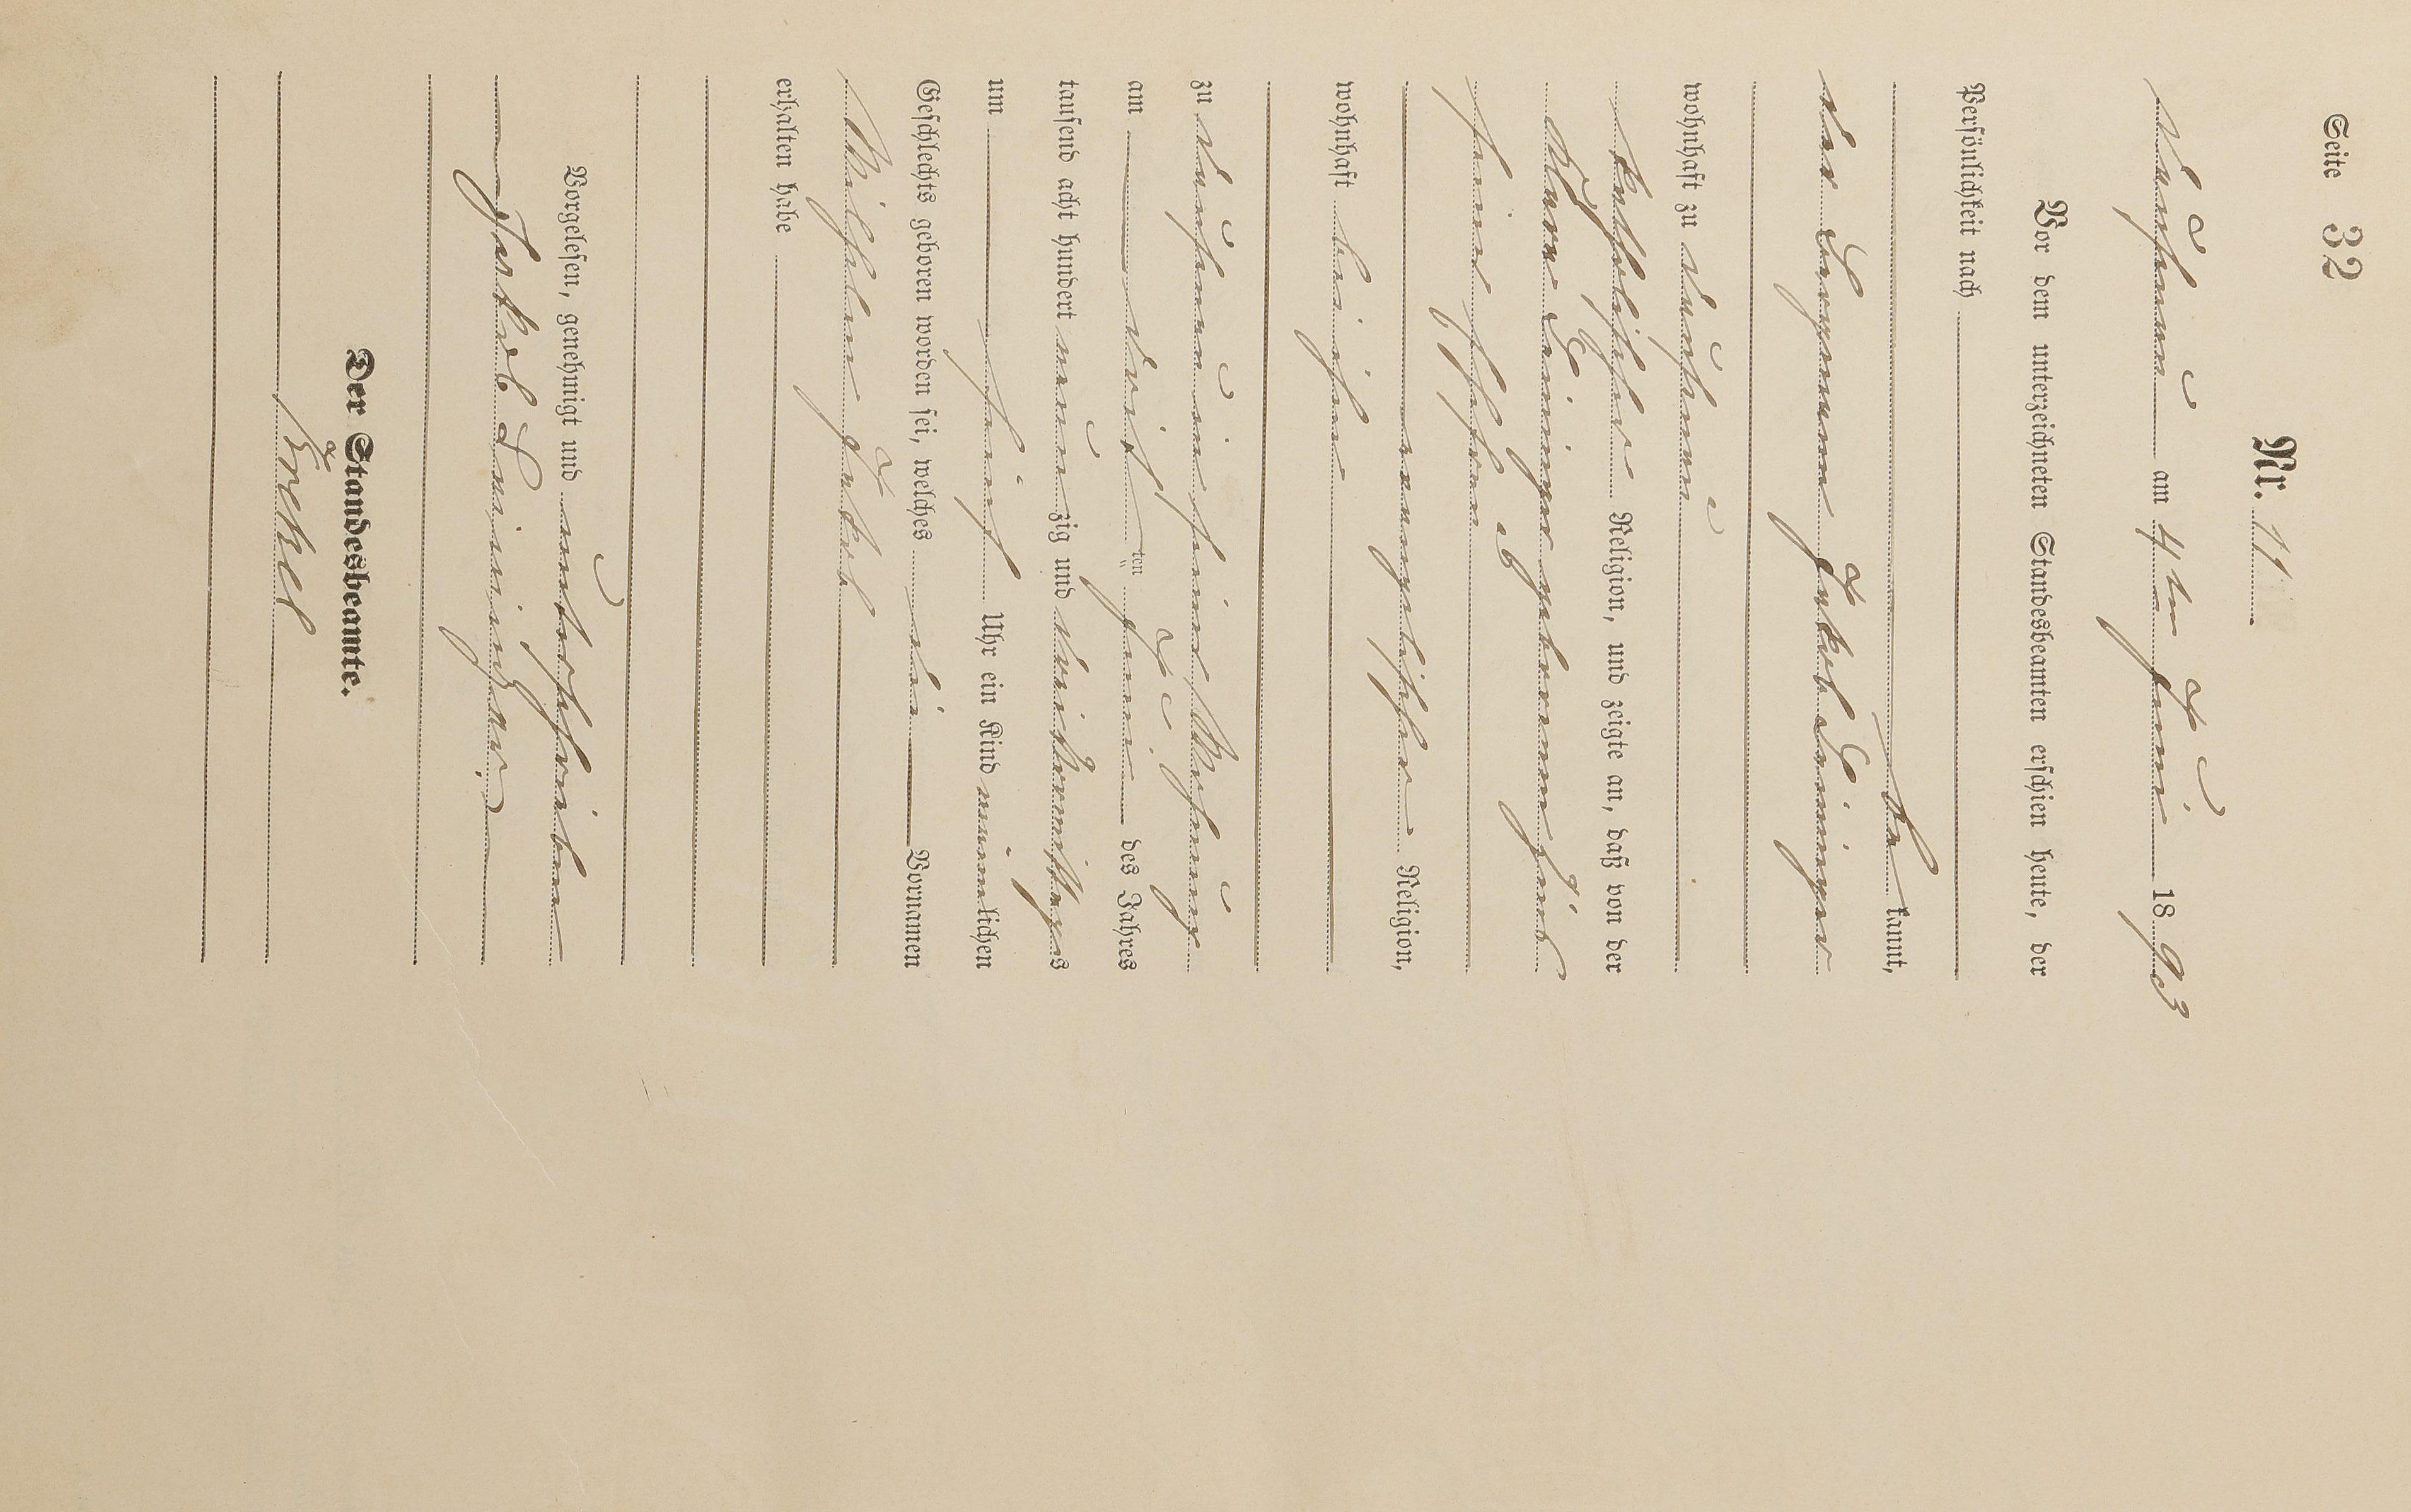 Seite 32
Nr. 11
am 4ten Juni 1893
Vor dem unterzeichneten Standesbeamten erschien heute, der
Persönlichkeit nach
be kannt,
der Bergmann Jakob Leininger
wohnhaft zu
katholischer Religion, und zeigte an, daß von der
Leininger geborenen
seiner Ehefrau
evangelischer Religion,
wohnhaft bei ihm
zu in seiner Wohnung
am dritten Juni des Jahres
tausend acht hundert neunzig und drei Vormittags
um fünf Uhr ein Kind männlichen
Geschlechts geboren worden sei, welches die Vornamen
Wilhelm Jakob
erhalten habe
Vorgelesen, genehmigt und unterschrieben
Jakob Leininger
Der Standesbeamte.
Brekel